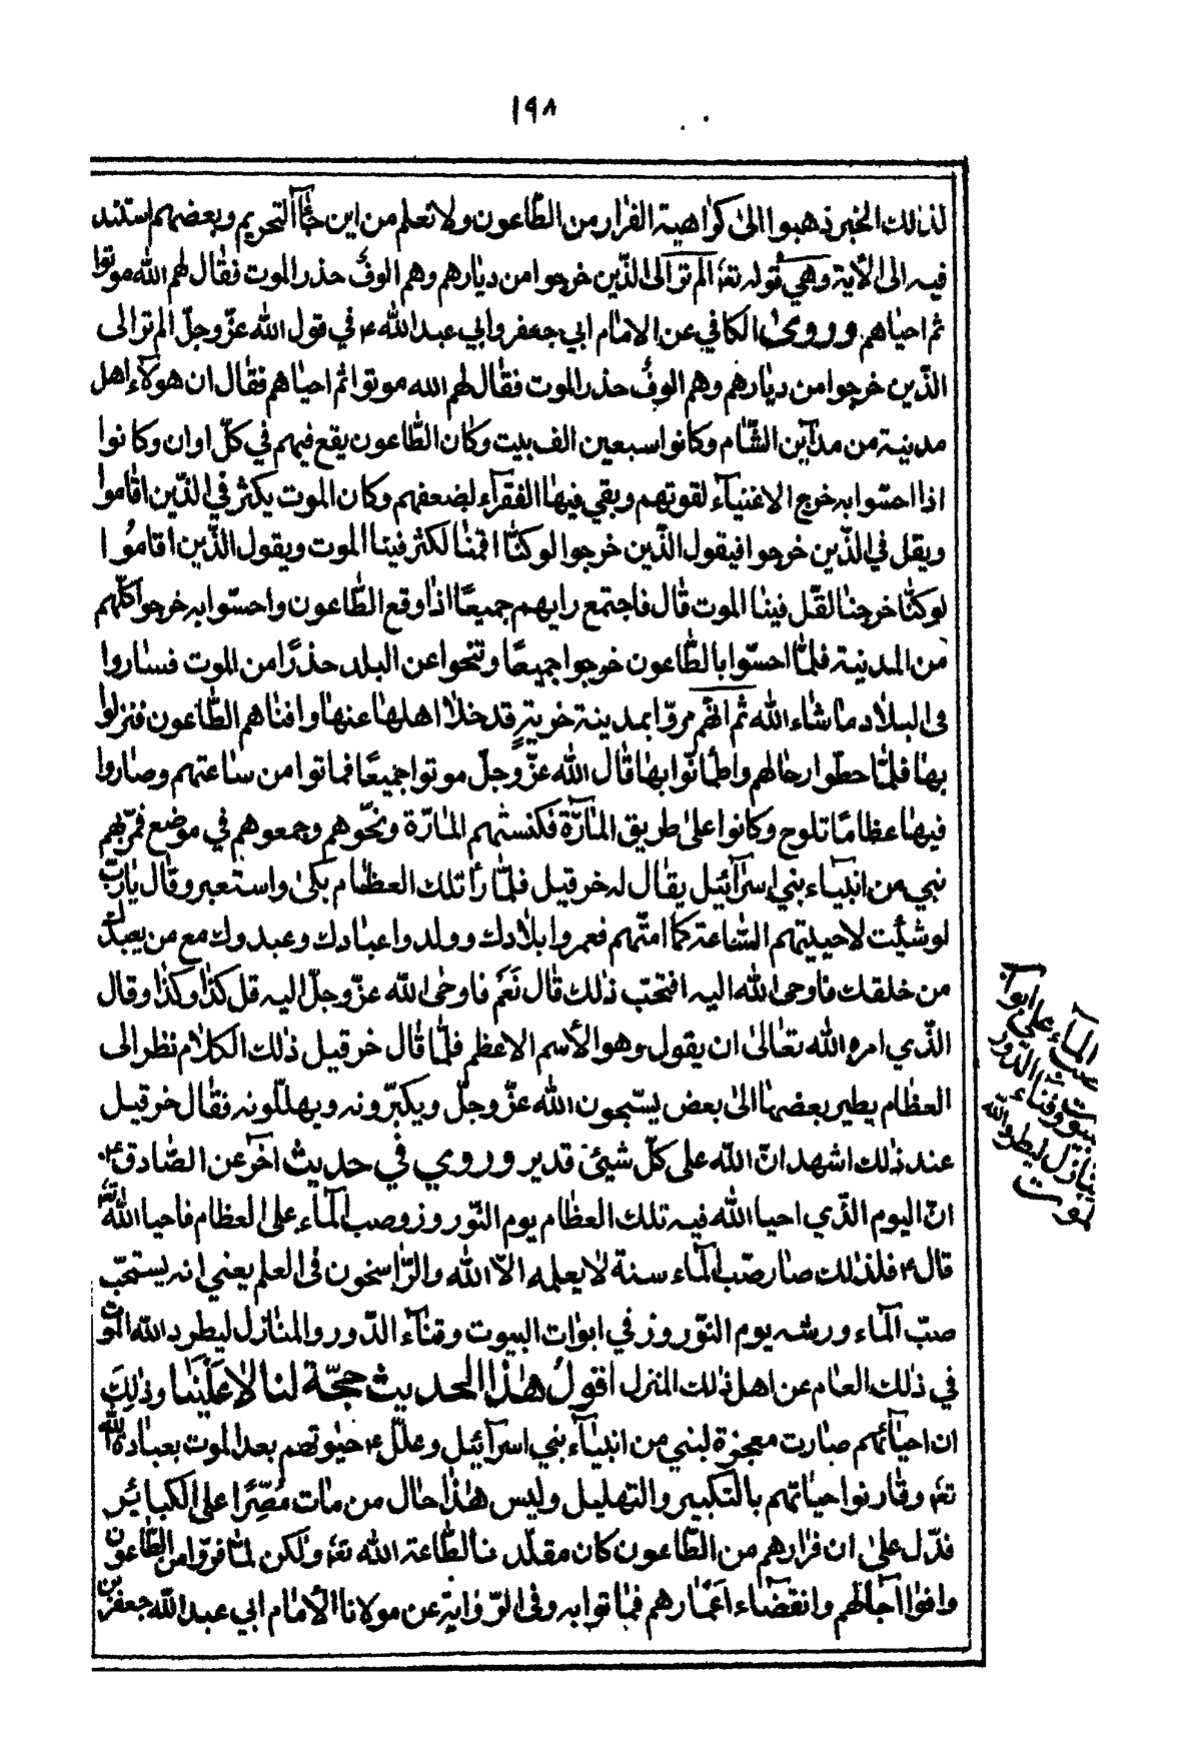 ١٩٨
لذلك الخبر ذهبوا الى كراهية الفرار من الطّاعون ولا نعلم من اين جاء التحريم وبعضهم استند
فيه الى الآية وهي قوله تعٰ الم تر الى الذّين خرجوا من ديارهم وهم الوفٌ حذر الموت فقال لهم الله موتوا
ثم احياهم وروى الكافي عن الامام ابي جعفر وابي عبد الله ع في قول الله عزّ وجلّ الم تر الى
الذّين خرجوا من ديارهم وهم الوفٌ حذر الموت فقال لهم الله موتوا ثم احياهم فقال ان هولآء اهل
مدينة من مدآين الشّام وكانوا سبعين الف بيت وكان الطّاعون يقع فيهم في كلّ اوان وكانوا
اذا احسّوا به خرج الاغنيآء لقوتهم وبقي فيها الفقرآء لضعفهم وكان الموت يكثر في الذّين اقاموا
ويقل في الذّين خرجوا فيقول الذّين خرجوا لو كنّا اقمنا لكثر فينا الموت ويقول الذّين اقاموا
لو كنّا خرجنا لقّل فينا الموت قال فاجتمع رايهم جميعًا اذا وقع الطّاعون واحسّوا به خرجوا كلّهم
من المدينة فلمّا احسّوا بالطّاعون خرجوا جميعًا وتنحوا عن البلد حذرًا من الموت فساروا
في البلاد ما شاء الله ثم انهم مرّوا بمدينة خربةٍ قد خلا اهلها عنها وافناهم الطّاعون فنزلوا
بها فلمّا حطّوا رحالهم واطمأنّوا بها قال الله عزّ وجلّ موتوا جميعًا فماتوا من ساعتهم وصاروا
فيها عظامًا تلوح وكانوا على طريق المارّة فكنستهم المارّة ونحّوهم وجمعوهم في موضع فمرّ بهم
نبي من انبياء بني اسرآئيل يقال له خرقيل فلمّا رأ تلك العظام بكى واستعبر وقال يا ربّ
لو شئت لاحييتهم السّاعة كما امتّهم فعمروا بلادك وولدوا عبادك وعبدوك مع من يعبدك
من خلقك فاوحى الله اليه افتحبّ ذلك قال نَعَم فاوحى الله عزّ وجلّ اليه قل كذا وكذا وقال
الذّي امره الله تعالى ان يقول وهو الأسم الاعظم فلمّا قال خرقيل ذلك الكلام نظر الى
العظام يطير بعضها الى بعض يسّبحون الله عزّ وجلّ ويكبّرونه ويهلّلونه فقال خرقيل
عند ذلك اشهد انّ الله على كلّ شيئ قدير وروي في حديث آخر عن الصّادق ع
انّ اليوم الذّي احيا الله فيه تلك العظام يوم النّوروز وصب المآء على العظام فاحيا الله تعٰ
قال ع فلذلك صار صّب المآء سنة لا يعلمه الاّ الله والرّاسخون في العلم يعني انه يستحبّ
صبّ المآء ورشه يوم النّوروز في ابوات البيوت وفنآء الدّور والمنازل ليطرد الله الموت
في ذلك العام عن اهل ذلك المنزل اقول هذا الحديث حجّة لنا لا علينا وذلك
ان احيائهم صارت معجزة لبني من انبيآء بني اسرآئيل وعلّل ع حيوتهم بعد الموت بعبادة الله
تعٰ وقارنوا حياتهم بالتكبير والتهليل وليس هذا حال من مات مُصِّرًا على الكبائر
فدّل على ان فرارهم من الطّاعون كان لطّاعة الله تعٰ ولكن لمّا فرّوا من الطّاعون
وافوا اجالهم وانقضاء اعمارهم فماتوا به وفي الرّواية عن مولانا الأمام ابي عبد الله جعفر بن
المآء على ابواب
وفنآء الدور